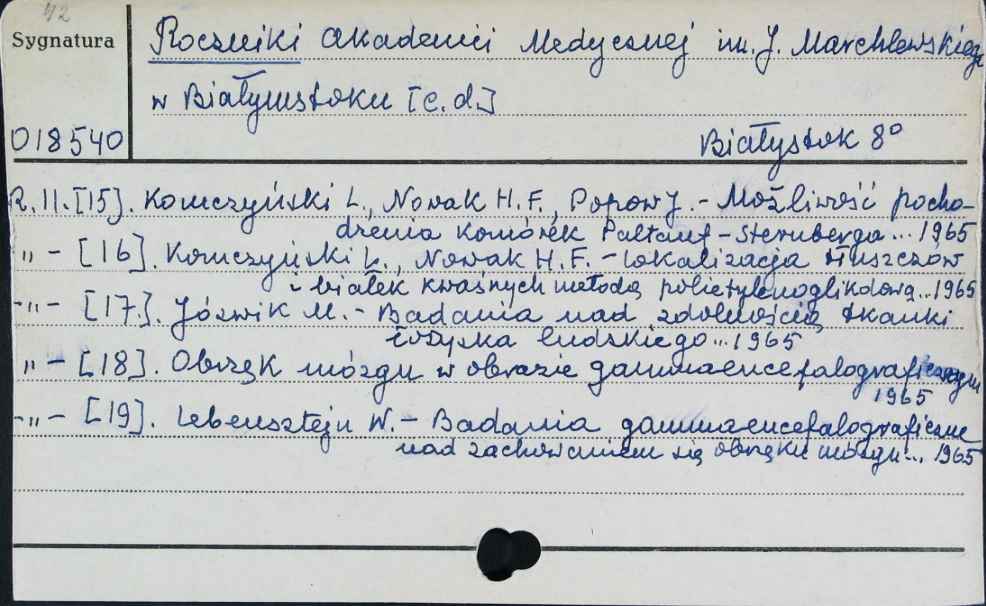 42
Sygnatura
Roczniki Akademii Medycznej im. J. Marchlewskiego
w Białymstoku [c.d.]
018540
Białystok 8°
R. 11. [15]. Komczyński L., Nowak H. F., Popow J. - Możliwość pocho-
dzenia komórek Paltauf - Sternberga ... 1965
„ - [16]. Komczyński L., Nowak H. F. - Lokalizacja tłuszczów
i białek kwaśnych metodą polietylenoglikolową ... 1965
-„- [17]. Jóźwik M. - Badania nad zdolnością tkanki
łożyska ludzkiego ... 1965
„ - [18]. Obrzęk mózgu w obrazie gammaencefalograficznym
1965
-„- [19]. Lebensztejn W. - Badania gammaencefalograficzne
nad zachowaniem się obrzęku mózgu ... 1965